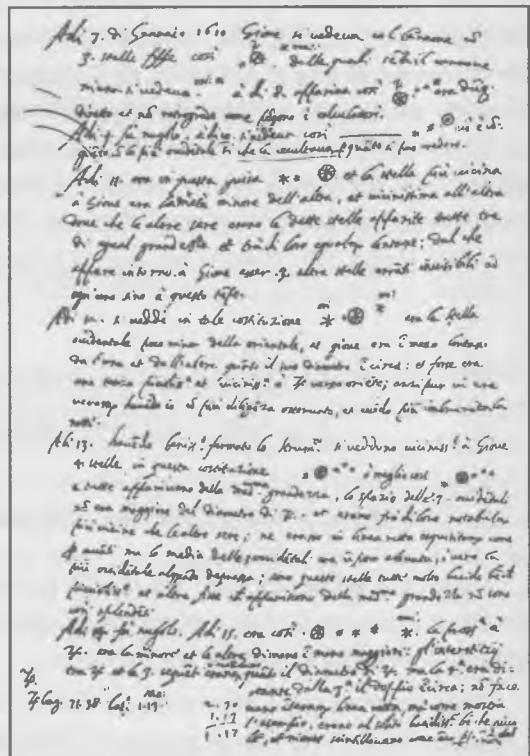 Adi 7. di Gennaio 1610 Giove si vedeva col Cannone
3. stelle fisse così
delle quali senza il cannone
niuna si vedeva. à dì 8. appariva così era dunque
diretto et nõ retrogrado come i calculatori.
Adi 9. fu nugolo. à dì 10. si vedeva così
che la occultava quãto si può vedere.
Adi 11. era in questa guisa ** et la stella più vicina
à Giove era la metà minore dell'altra, et vicinissima all'altra
dove che le altre sere erano le dette stelle apparite tutte tre
di egual grandezza et trà di loro egualmẽte lontane; dal che
appare intorno à Giove esser 3. altre stelle erranti invisibili ad
ogni uno sino à questo tẽpo.
Adi 12. si vedde in tale costituzione * * era la stella
occidentale poco minor della orientale, et giove era ĩ mezo lontano
da l'una et da l'altra quãto il suo diametro ĩ circa: et forse era
una terza et verso oriẽte; anzi pur vi era
veramẽte havẽdo io cõ più diligẽza osservato, et sẽdo più imbrunita la
notte.
Adi 13. havẽdo beniss.º fermato lo strum.º si veddono viciniss.º à Giove
4 stelle in questa costituzione ò meglio così
e tutte apparivano della med.ma grandezza, lo spazio delle 3. occidẽtali
nõ era maggiore del diametro di ♃. et erano frà di loro notabilmẽte
più vicine che le altre sere; ne erano in linea retta esquisitamẽte come
avãti ma la media delle 3 occidẽtali era ũ poco elevata, overo la
più occidẽtale alquãto depressa; sono queste stelle tutte molto lucide bẽchè
piccoliss.e et altre fisse che appariscono della med.ma grandezza nõ sono
così splẽdẽti.
Adi 14. fu nugolo. Adi 15. era così * * * * la pross.ª à
♃. era la minore et le altre di mano ĩ mano maggiori: gl'interstizii
trà ♃ et le 3. seguẽti erano quãto il diametro di ♃. ma la 4.ª era di-
stante dalla 3.ª il doppio ĩ circa; nõ face-
♃ long. 71.38 lat. 1.13
vano ĩteramẽte linea retta, ma come mostra
l'esempio, erano al solito lucidiss.e bẽchè picco-
le, et niente scintillavano come